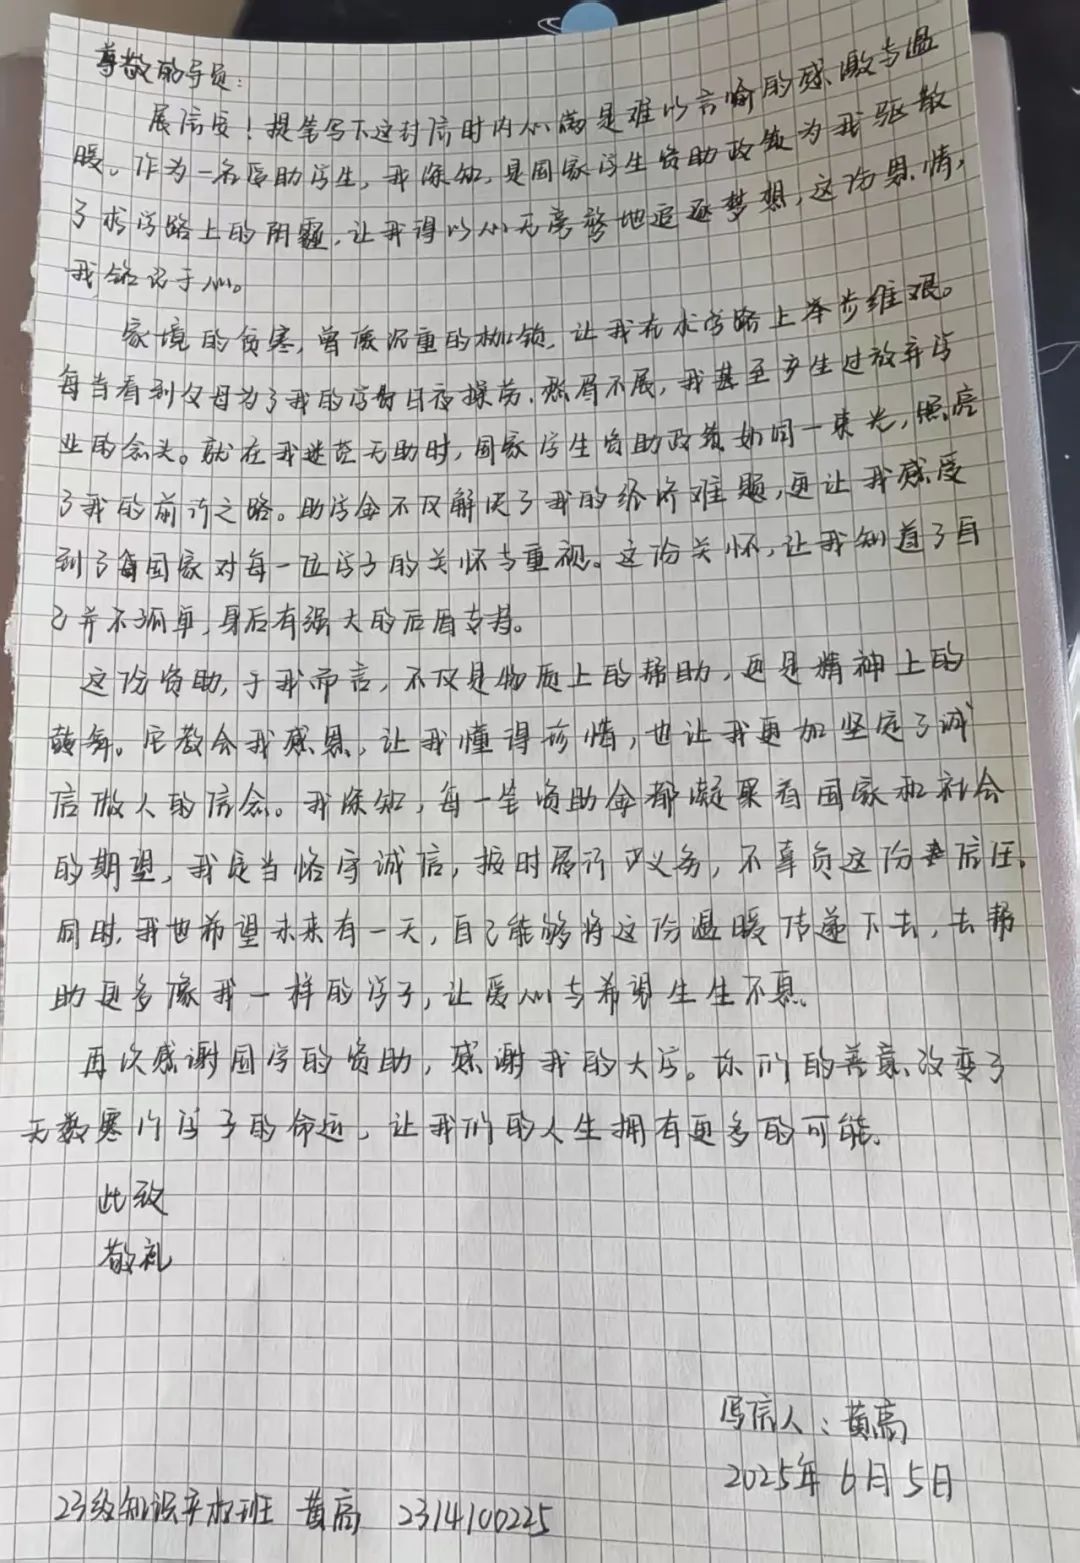 尊敬的导员:
展信安!提笔写下这封信时内心满是难以言喻的感激与温
暖。作为一名受助学生,我深知,是国家学生资助政策为我驱散
了求学路上的阴霾,让我得以心无旁骛地追逐梦想,这份恩情,
我铭记于心。
家境的贫寒,曾像沉重的枷锁,让我在求学路上举步维艰。
每当看到父母为了我的学费日夜操劳、愁眉不展,我甚至产生过放弃学
业的念头。就在我迷茫无助时,国家学生资助政策如同一束光,照亮
了我的前行之路。助学金不仅解决了我的经济难题,更让我感受
到了国家对每一位学子的关怀与重视。这份关怀,让我知道了自
己并不孤单,身后有强大的后盾支持。
这份资助,于我而言,不仅是物质上的帮助,更是精神上的
鼓舞。它教会我感恩,让我懂得珍惜,也让我更加坚定了诚
信做人的信念。我深知,每一笔资助金都凝聚着国家和社会
的期望,我定当恪守诚信,按时履行义务,不辜负这份信任。
同时,我也希望未来有一天,自己能够将这份温暖传递下去,去帮
助更多像我一样的学子,让爱心与希望生生不息。
再次感谢国家的资助,感谢我的大学。你们的善意,改变了
无数寒门学子的命运,让我们的人生拥有更多的可能。
此致
敬礼
写信人:黄高
2025年6月5日
23级知识产权班 黄高 2314100225